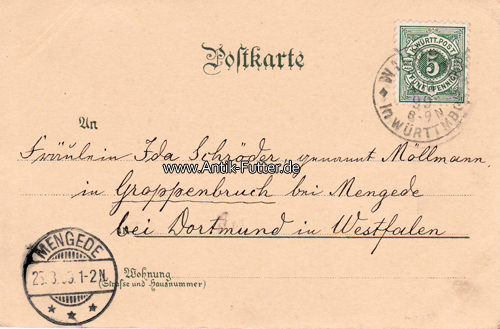 Postkarte
K. WÜRTT. POST
5
FÜNF PFENNIG
IN WÜRTTEMB.
8-9 N
An
Fräulein Ida Schröder, genannt Möllmann,
www.Antik-Futter.de
in Groppenbruch bei Mengede
bei Dortmund in Westfalen
MENGEDE
1-2N.
Wohnung
(Strasse und Hausnummer)